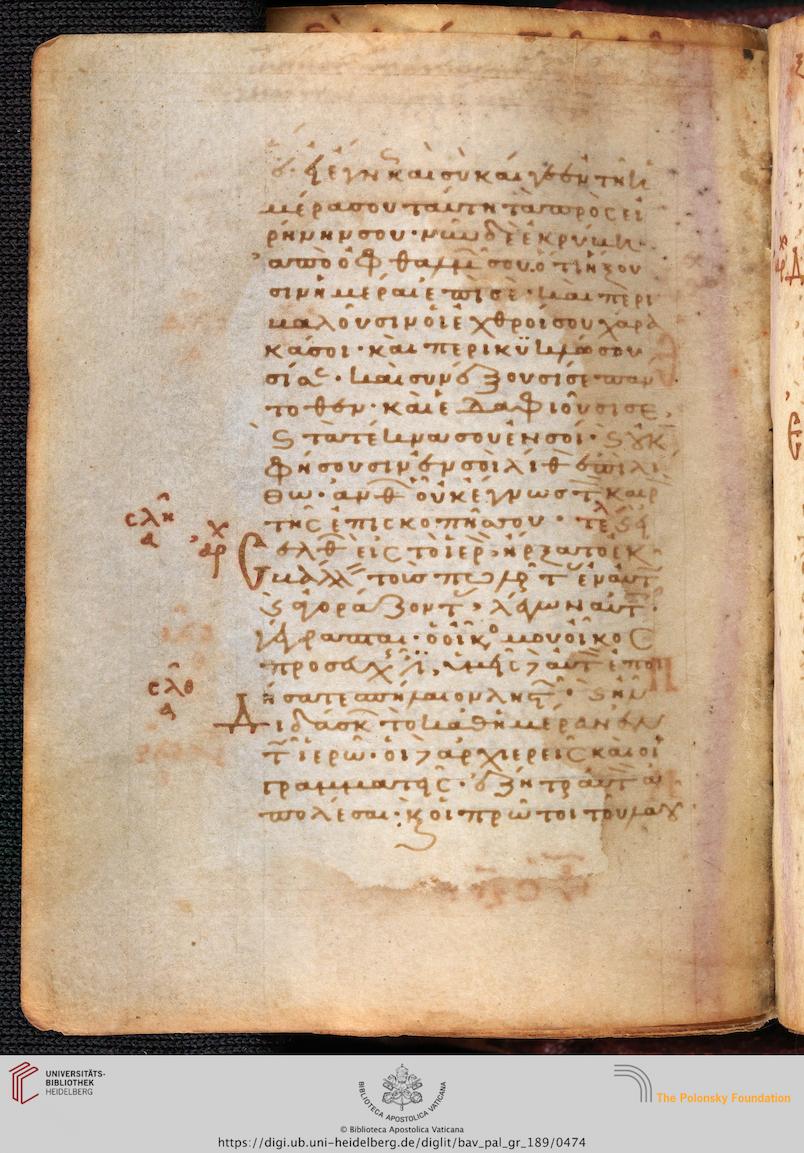 ὅτι εἰ ἔγνως καὶ σὺ καί γε ἐν τῇ ἡ
μέρα σου ταύτη τὰ πρὸς εἰ
ρήνην σου· νῦν δὲ ἐκρύβη
ἀπὸ ὀφθαλμῶν σου ὅτι ἥξου
σιν ἡμέραι ἐπὶ σὲ· καὶ περι
βαλοῦσιν οἱ ἐχθροί σου χάρα
κά σοι· καὶ περικϋκλώσου
σί σε· καὶ συνέξουσί σε παν
τοθεν· καὶ ἐδαφιοῦσί σε,
ϗ τὰ τέκνα σου ἐν σοί· ϗ οὐκ
ἀφήσουσιν ἐν σοὶ λίθον ἐπὶ λί
θω· ἀνθ ὧν οὐκ ἔγνως τ καιρ
τῆς ἐπισκοπῆς σου· τελ ϗ
σλη
δ
χ
αρ
εἰσελθ εἰς τὸ ἱερ, ἤρξατο ἐκ
βαλλ τοὺς πωλ ἐν αὐτ
ϗ ἀγοράζοντ, λέγων αὐτ·
γέγραπται· ὁ οἶκ μου οἶκος
προσευχ ὑμεῖς αὐτ ἐποι
ήσατε σπήλαιον ληστ· ϗ ἦν
σλθ
α
Διδάσκ τὸ καθ ἡμέραν ἐν
τ ἱερῶ· οἱ ἀρχιερεῖς καὶ οἱ
γραμματεῖς· ἐζητ αὐτ ἀ
πολέσαι· ϗ οἱ πρῶτοι τοῦ λαοῦ
UNIVERSITÄTS-
BIBLIOTHEK
HEIDELBERG
BIBLIOTECA APOSTOLICA VATICANA
The Polonsky Foundation
© Biblioteca Apostolica Vaticana
https://digi.ub.uni-heidelberg.de/diglit/bav_pal_gr_189/0474